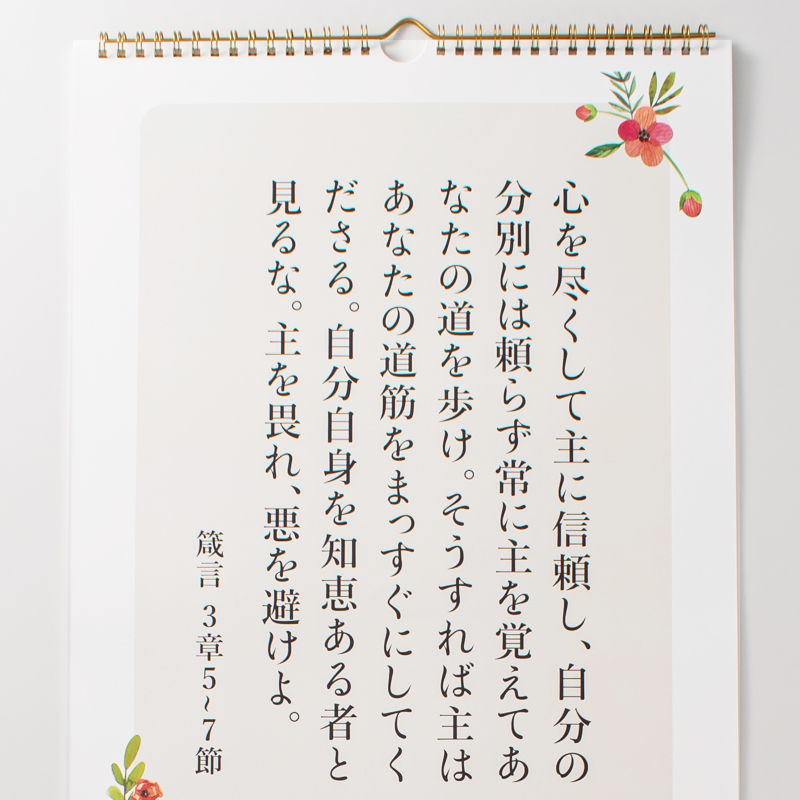 心を尽くして主に信頼し、自分の
分別には頼らず常に主を覚えてあ
なたの道を歩け。そうすれば主は
あなたの道筋をまっすぐにしてく
ださる。自分自身を知恵ある者と
見るな。主を畏れ、悪を避けよ。
箴言 3章5~7節